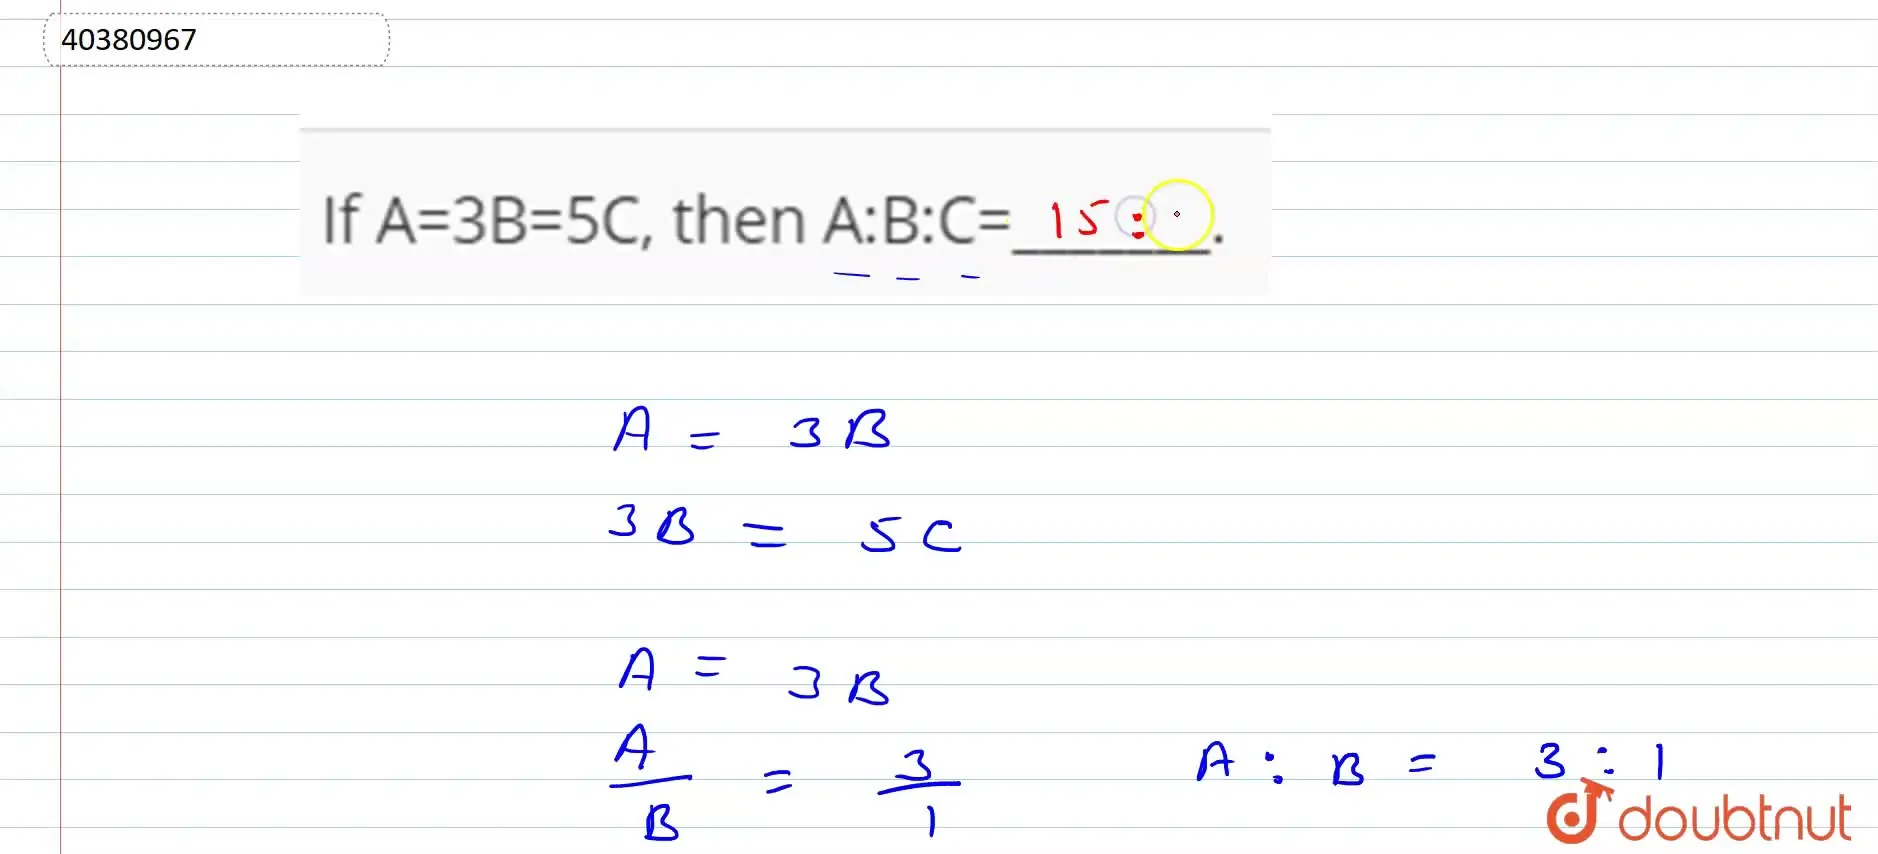 40380967
If A=3B=5C, then A:B:C=15:______.
A = 3B
3B = 5C
A = 3B
A/B = 3/1
A : B = 3 : 1
doubtnut